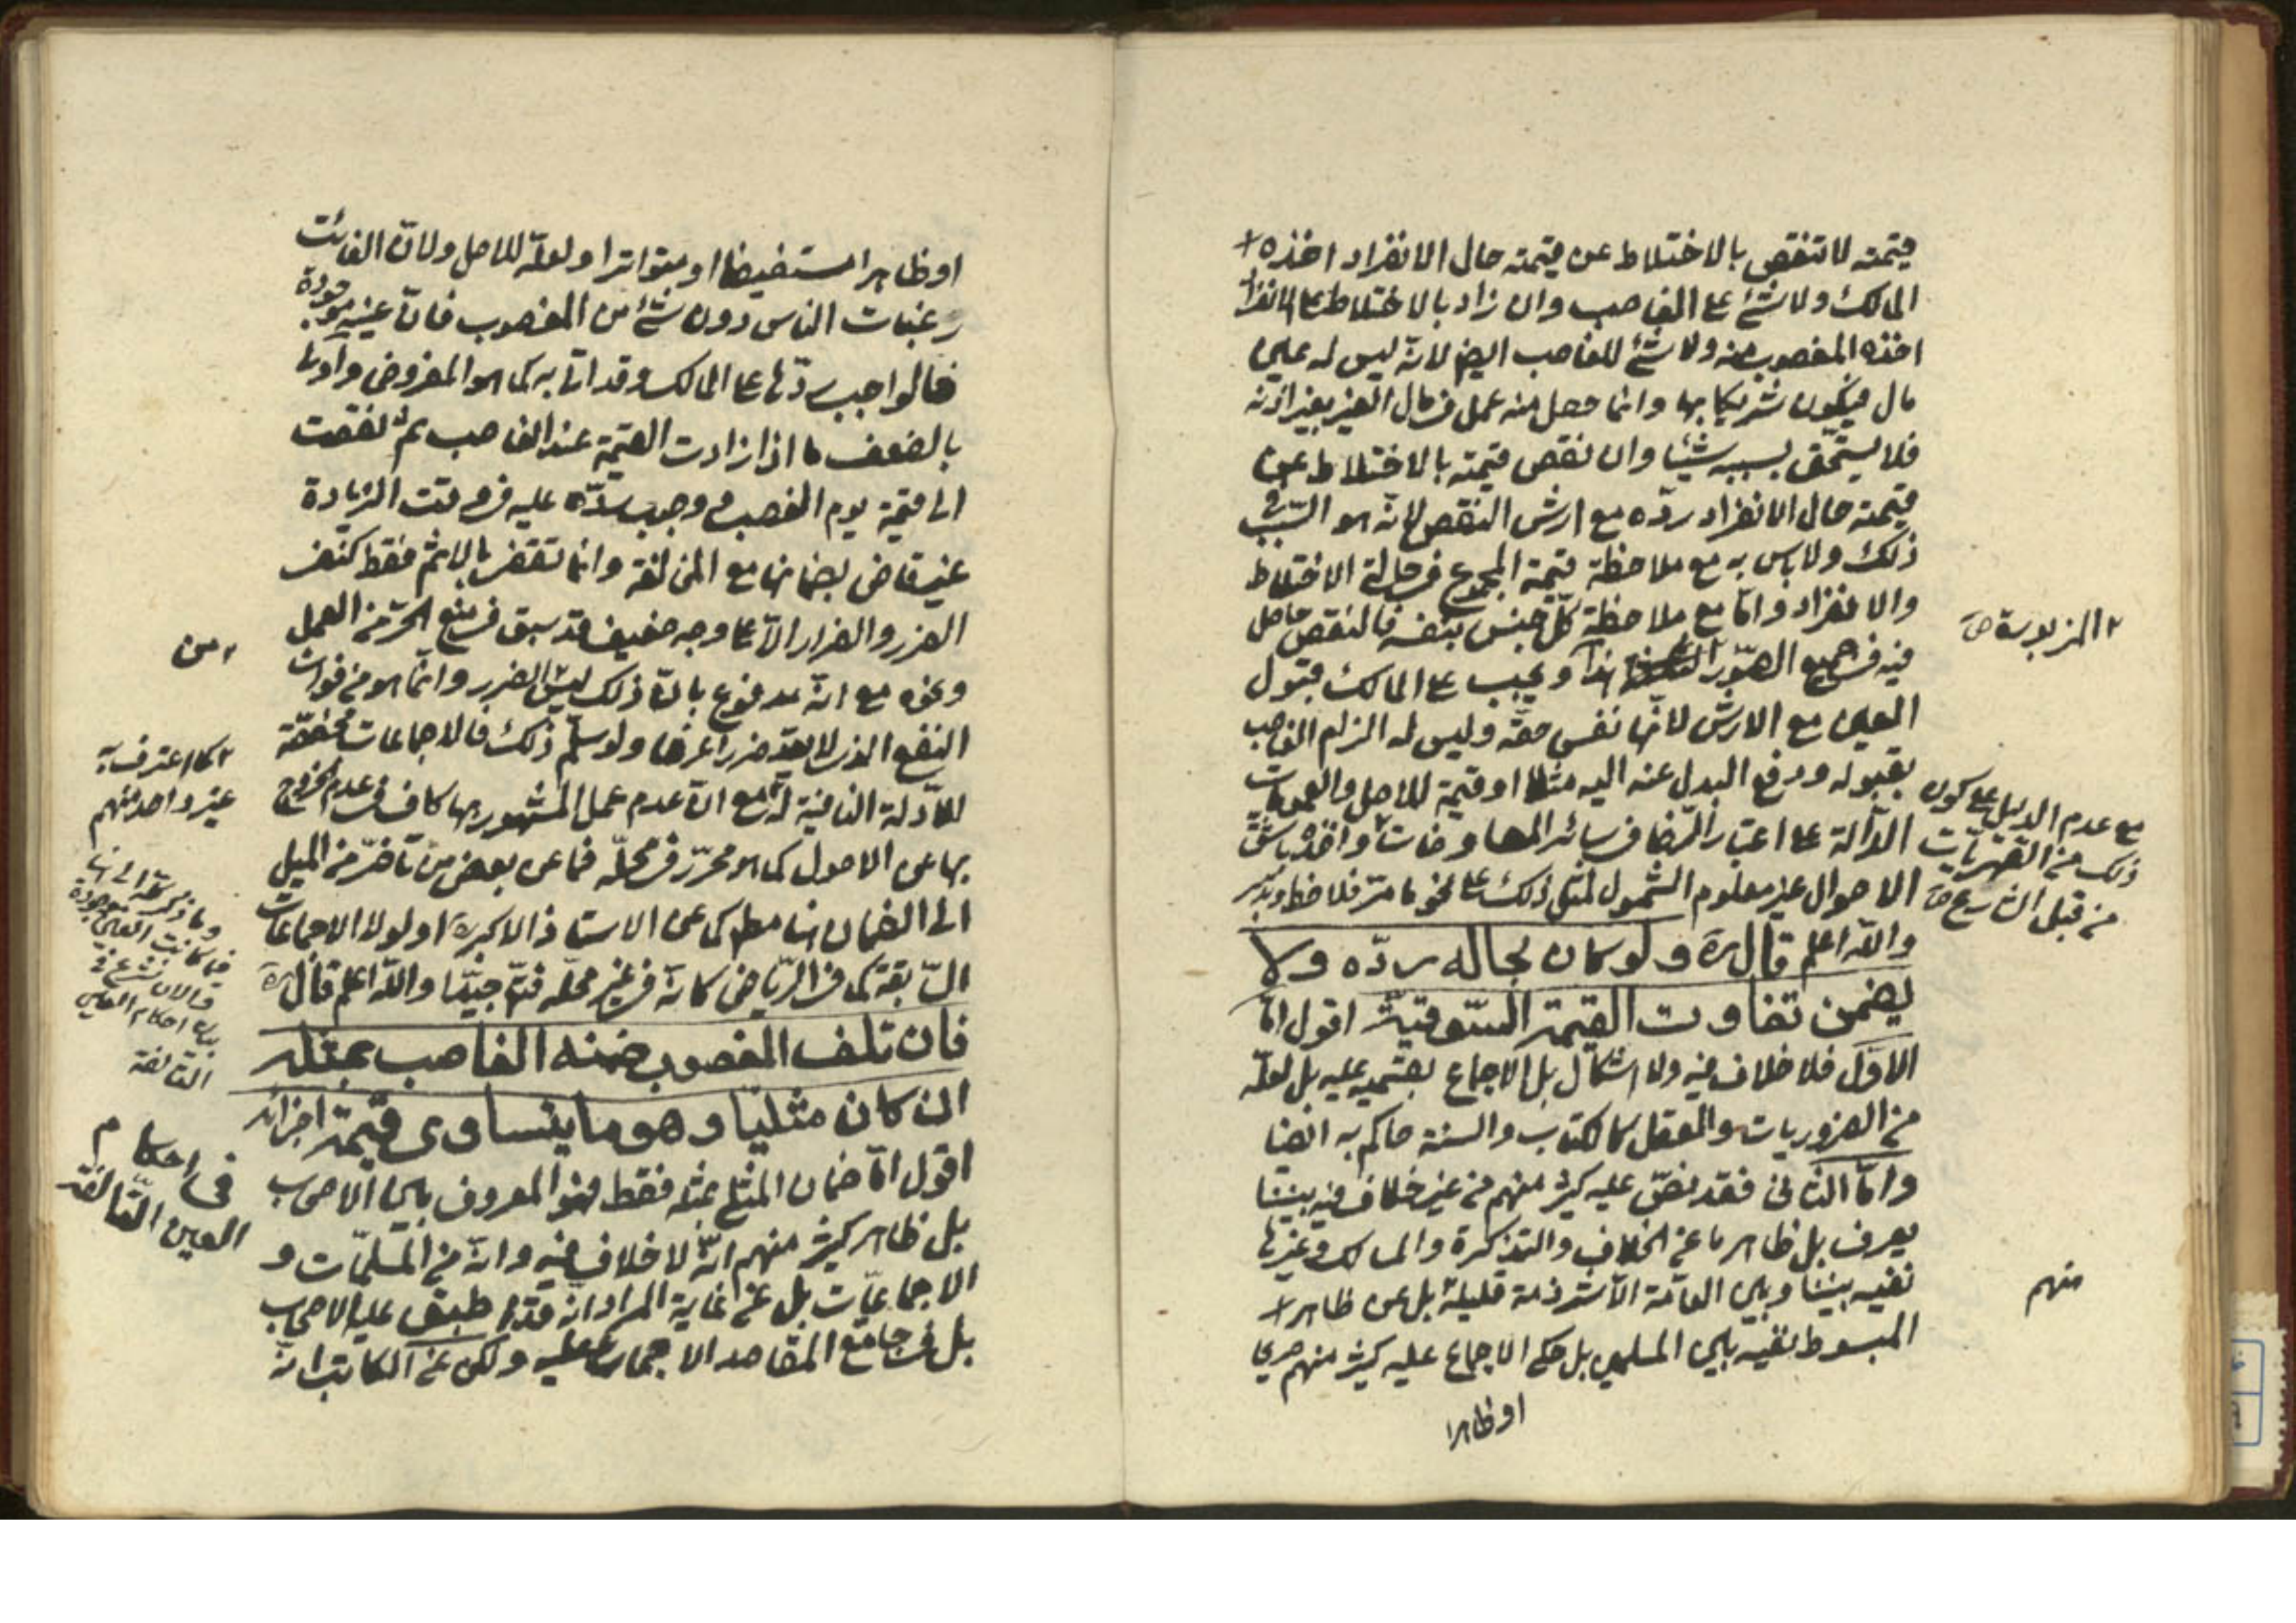 قيمته لا تنقص بالاختلاط عن قيمته حال الانفراد اخذه
المالك ولا شئ على الغاصب وان زاد بالاختلاط على الانفراد
اخذه المغصوب منه ولا شئ للغاصب ايضا لانه ليس له عين
مال فيكون شريكا بها وانما حصل منه عمل في مال الغير بغير اذنه
فلا يستحق بسببه شيئا وان نقص قيمته بالاختلاط عن
قيمته حال الانفراد ردّه مع ارش النقص لانه هو السّبب في
ذلك ولا باس به مع ملاحظة قيمة المجموع في حالتي الاختلاط
والانفراد وامّا مع ملاحظة كلّ جنس بنفسه فالنقص حاصل
فيه في جميع الصّور هذا ويجب على المالك قبول
المزبورة صح
العين مع الارش لانّها نفس حقّه وليس له الزام الغاصب
بقبوله ودفع البدل عنه اليه مثلا او قيمة للاصل والعمومات
الدّالة على اعتبار الرّضا في سائر المعاوضات واخذه باشقّ
الاحوال غير معلوم الشمول لمثل ذلك على نحو ما مرّ فلاحظ وتدبّر
مع عدم الدليل على كون
ذلك من القهريّات
من قبل الشارع صح
والله اعلم قال ره ولو كان بحاله ردّه ولا
يضمن تفاوت القيمة السّوقيّة اقول امّا
الاوّل فلا خلاف فيه ولا اشكال بل الاجماع بقسميه عليه بل لعلّه
من الضروريات والعقل كالكتاب والسنة حاكم به ايضا
وامّا الثاني فقد نصّ عليه كثير منهم من غير خلاف فيه بيننا
يعرف بل ظاهر ما عن الخلاف والتذكرة والمسالك وغيرها
نفيه بيننا وبين العامّة الّا شرذمة قليلة بل عن ظاهر
منهم
المبسوط نفيه بين المسلمين بل حكى الاجماع عليه كثير منهم صريحا
او ظاهرا
او ظاهرا مستفيضا او متواترا ولعلّه للاصل ولانّ الفائت
رغبات الناس دون شئ من المغصوب فانّ عينه موجودة
فالواجب ردّها على المالك وقد اتى به كما هو المفروض
بالضعف ما اذا زادت القيمة عند الغاصب ثم نقصت
الى قيمة يوم الغصب وجب ردّه عليه في وقت الزيادة
غير قاض بضمانها مع المخالفة وانما تقضي بالاثم فقط كنفي
الضرر والضرار الّا على وجه ضعيف قد سبق في منع الحرّ من العمل
ونحوه مع انّه مدفوع بانّ ذلك ليس الضرر وانّما هو من فوات
من
النفع الذي لا يعدّ ضررا عرفا ولو سلّم ذلك فالاجماعات مخصّصة
للادلة النافية له مع انّ عدم عمل المشهور بها كاف في عدم الخروج
كما اعترف به
غير واحد منهم
بها عن الاصول كما هو محرّر في محلّه فما عن بعض من تاخّر من الميل
الى الضمان هنا مط كما عن الاستاذ الاكبر ره او لولا الاجماعات
السّابقة كما في الرّياض كانّه في غير محلّه فتامّل جيّدا والله اعلم قال ره
فان تلف المغصوب ضمنه الغاصب بمثله
ان كان مثليّا وهو ما يتساوى قيمة اجزائه
اقول امّا ضمان المثلي بمثله فقط فهو المعروف بين الاصحاب
بل ظاهر كثير منهم انّه لا خلاف فيه وانّه من المسلّمات و
الاجماعيّات بل عن غاية المراد انّه قد اطبق عليه الاصحاب
بل في جامع المقاصد الاجماع عليه ولكن عن الكاتب انّه
وما ذكرته الى هنا
فيما كانت العين موجودة
فالان نشرع في
بيان احكام العين
التالفة
في احكام
العين التّالفة